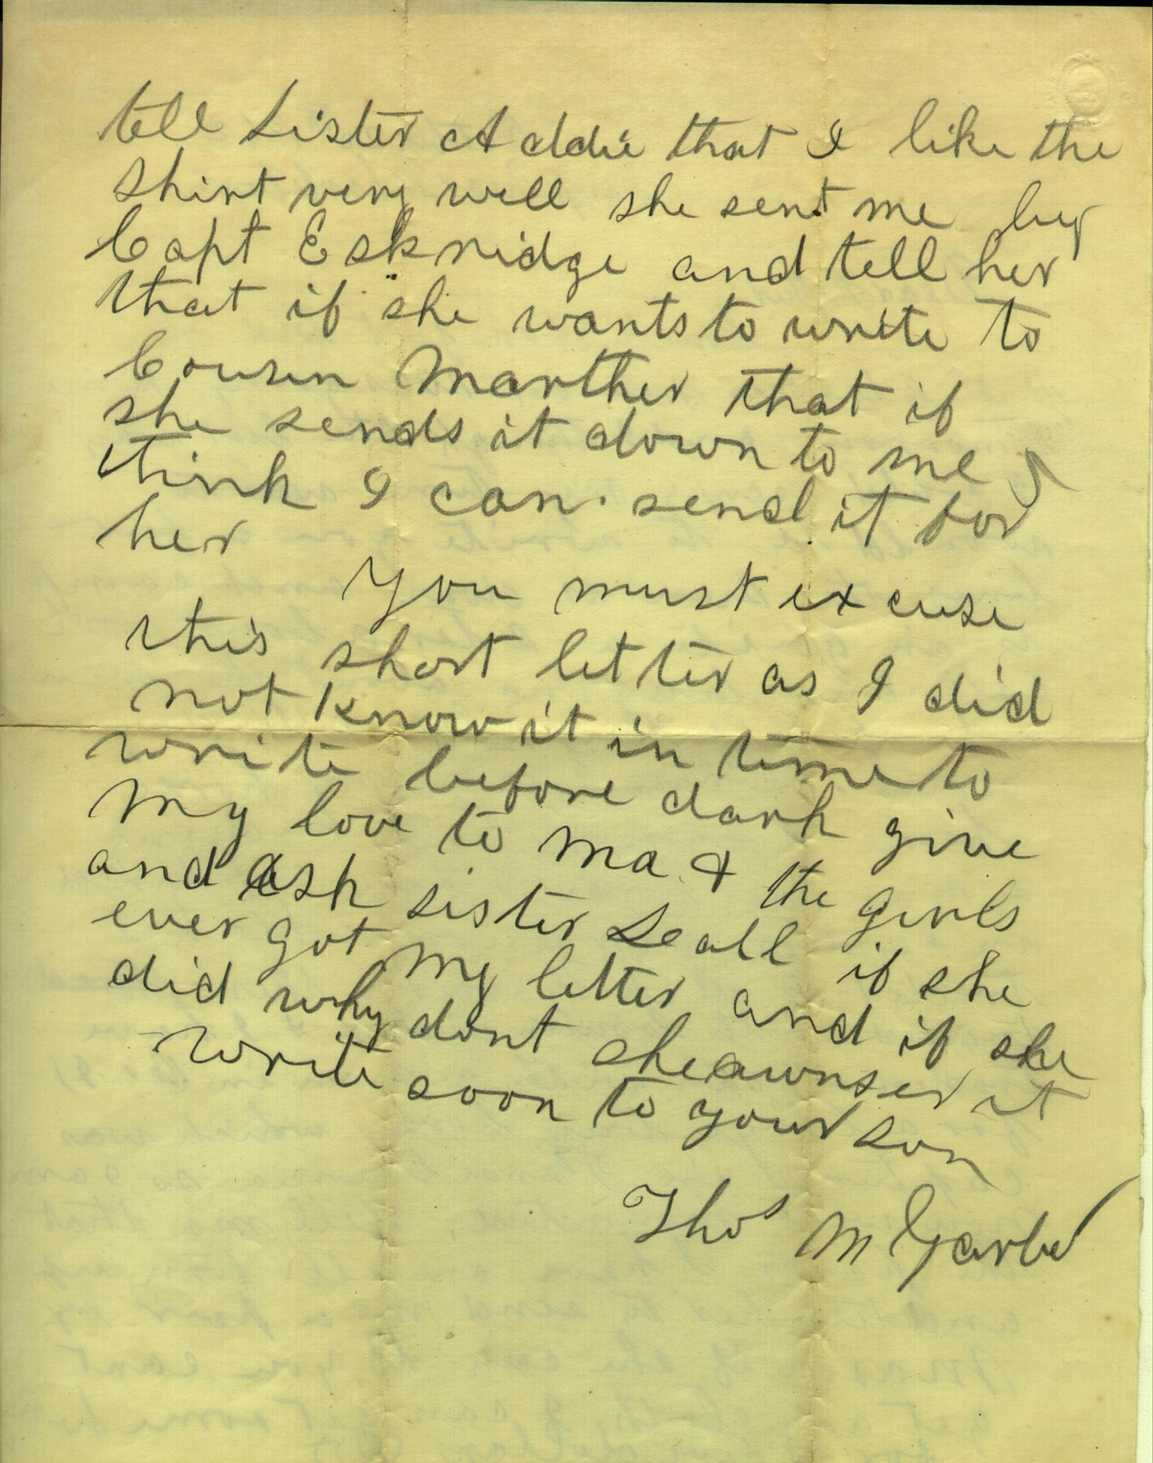 tell Sister Addie that I like the
shirt very well she sent me by
Capt Eskridge and tell her
that if she wants to write to
Cousin Marther that if
she sends it down to me I
think I can send it for
her You must excuse
this short letter as I did
not know it in time to
write before dark give
my love to ma & the girls
and ask sister Seall if she
ever got my letter and if she
did why dont she awnser it
write soon to your son
Thos M Garber